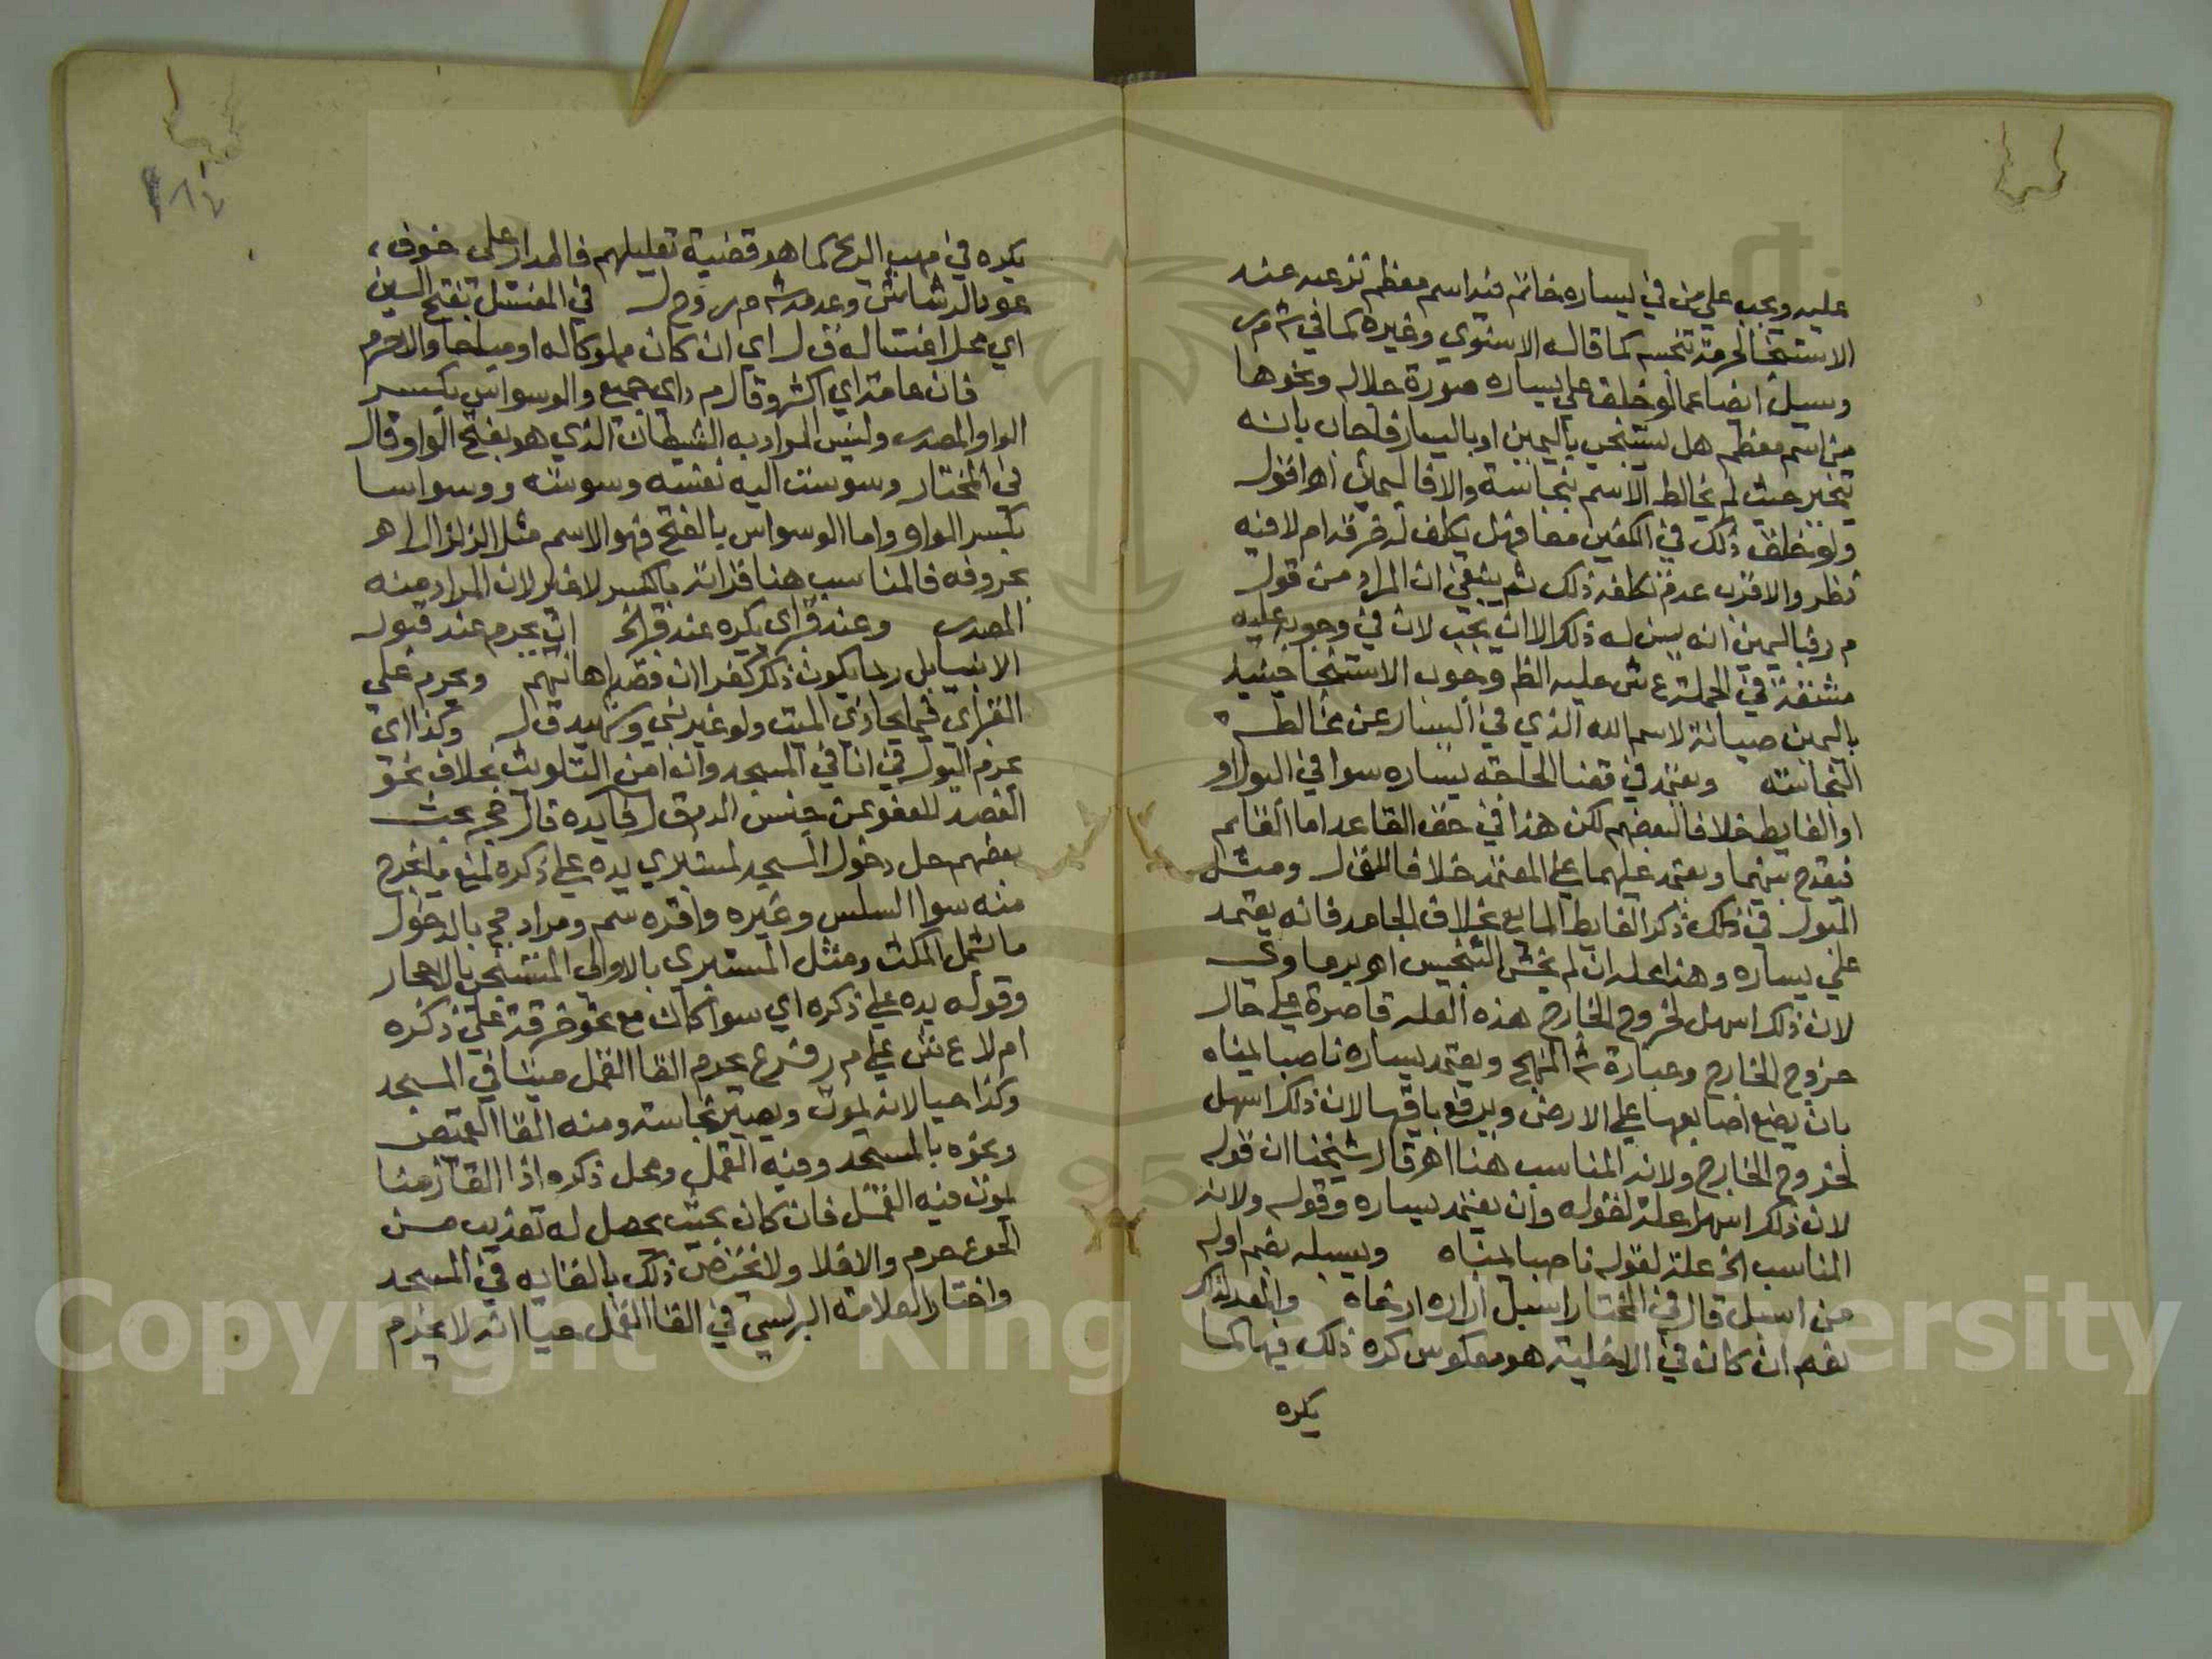 عليه ويجب على من في يساره خاتم فيه اسم معظم نزعه عنه
الاستنجا لحرمة تنجسه كما قاله الاسنوي وغيره كما في ش م ر
وسيل ايضا عما لو خلق على يساره صورة جلاله ونحوها
من اسم معظم هل يستنجي باليمين او باليسار فاجاب بانه
يتخير حيث لم يخالط الاسم نجاسة والا فاليمين اهـ اقول
ولو خلق ذلك في الكفين معا فهل يكلف لف خرقة ام لا فيه
نظر والاقرب عدم تكلفه ذلك ثم ينبغي ان المراد من قول
م ر فباليمين انه يسن له ذلك الا ان يجب لان في وجوبه عليه
مشقة في الجملة ع ش عليه الظ وجوب الاستنجا حينيذ
باليمين صيانة لاسم الله الذي في اليسار عن مخالطة
النجاسة ويعتمد في قضا الحاجة يساره سوا في البول او
او الغايط خلافا لبعضهم لكن هذا في حق القاعد اما القايم
فيفرج بينهما ويعتمد عليهما على المعتمد خلافا لقل ومثل
البول في ذلك ذكر الغايط المايع بخلاف الجامد فانه يعتمد
على يساره وهذا محله ان لم يخش التنجيس اهـ برماوي
لان ذلك اسهل لخروج الخارج هذه العلة قاصرة على حال
خروج الخارج وعبارة ش المنهج ويعتمد يساره ناصبا يمناه
بان يضع اصابعها على الارض ويرفع باقيها لان ذلك اسهل
لخروج الخارج ولانه المناسب هنا اهـ قال شيخنا ان قوله
لان ذلك اسهل علة لقوله وان يعتمد يساره وقوله ولانه
المناسب الخ علة لقوله ناصبا يمناه ويسبله بضم اوله
من اسبل قال في المختار اسبل ازاره ارخاه
نعم ان كان في الاخلية هو معكوس كره ذلك فيها كما
يكره
يكره في مهب الريح كما هو قضية تعليلهم فالمدار على خوف
عود الرشاش وعدمه ش م ر وح ل في المغتسل بفتح السين
اي محل اغتساله ق ل اي ان كان مملوكا له او مباحا والا حرم
فان عامة اي اكثر وقال م ر اي جميع والوسواس بكسر
الواو المصدر وليس المراد به الشيطان الذي هو بفتح الواو قال
في المختار وسوست اليه نفسه وسوسة ووسواسا
بكسر الواو واما الوسواس بالفتح فهو الاسم مثل الزلزال اهـ
بحروفه فالمناسب هنا قراته بالكسر لا غير لان المراد منه
المصدر وعند قبر اي يكره عند قبر الخ اي يحرم عند قبور
الانبيا بل ربما يكون ذلك كفرا ان قصد اهانتهم ويحرم على
القبر اي فيما يحاذي الميت ولو غير نبي وشهيد ق ل وكذا اي
يحرم البول في انا في المسجد وان امن التلويث بخلاف نحو
الفصد للعفو عن جنس الدم ق ل فايدة قال حج بحث
بعضهم حل دخول المسجد لمستبري يده على ذكره لمنع ما يخرج
منه سوا السلس وغيره واقره سم ومراد حج بالدخول
ما يشمل المكث ومثل المستبري بالاولى المستنجي بالاحجار
وقوله يده على ذكره اي سوا كان مع نحو خرقة على ذكره
ام لا ع ش على م ر فرع يحرم القا القمل ميتا في المسجد
وكذا حيا لانه يموت ويصير نجاسة ومنه القا القميص
ونحوه بالمسجد وفيه القمل ومحل ذكره اذا القا زمنا
يموت فيه القمل فان كان بحيث يحصل له تعذيب من
الجوع حرم والا فلا ولا يختص ذلك بالقايه في المسجد
واختار العلامة البرلسي في القا القمل حيا انه لا يحرم
Copyright © King Saud University